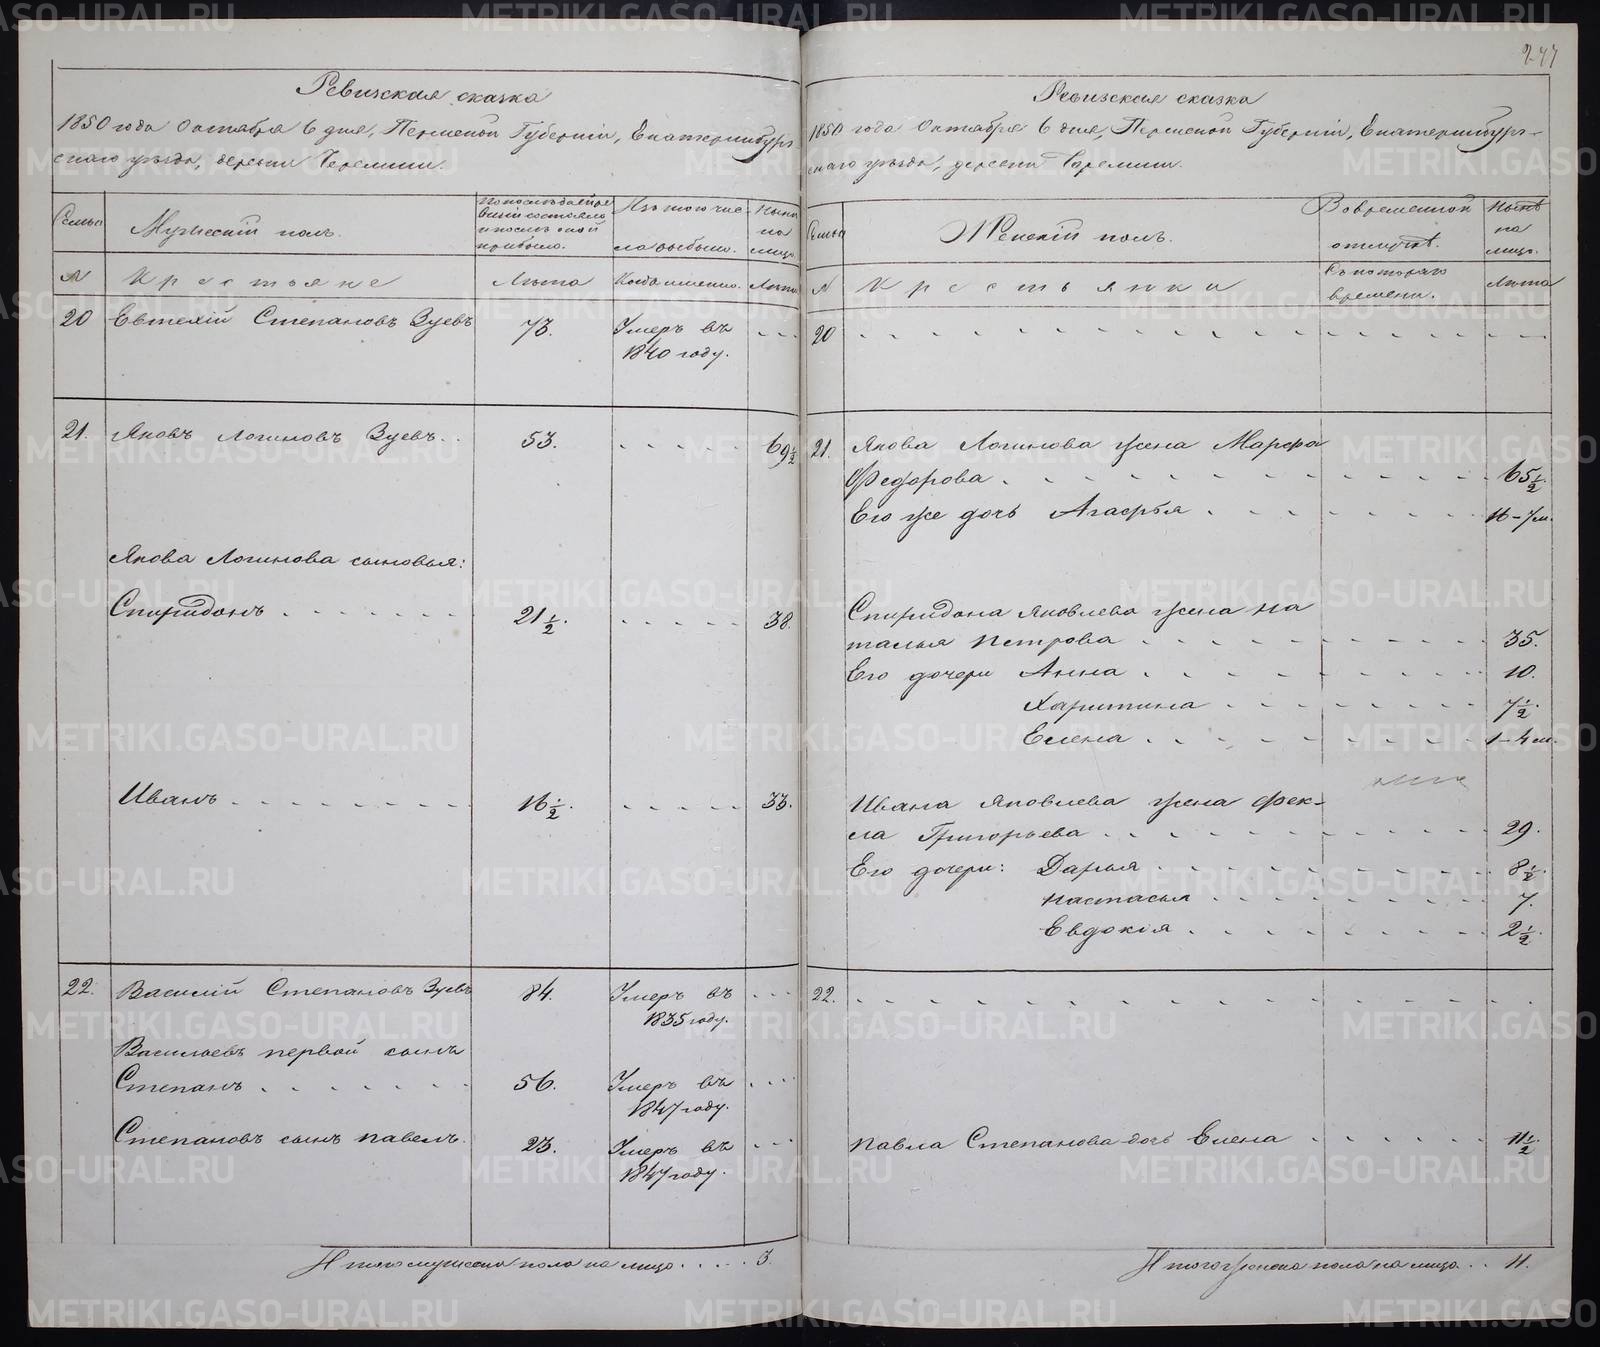 277
Ревизская сказка
1850 года Октября 6 дня, Пермской Губернiи, Екатеринбург-
скаго уѣзда, деревни Черемши.
Семьи
Мужескiй полъ.
По последней ре
визiи состояло
и после оной
прибыло.
Изъ того чис-
ла выбыло.
Ныне
на
лицо.
№
Крестьяне
Лѣта
Когда именно.
Лѣта
20
Евтехiй Степановъ Зуевъ
73.
Умеръ въ
1840 году.
21.
Яковъ Логиновъ Зуевъ
53.
69½
Якова Логинова сыновья:
Спиридонъ
21½.
38.
Иванъ
16½.
33.
22.
Василiй Степановъ Зуевъ
84.
Умеръ въ
1835 году.
Васильевъ первой сынъ
Степанъ
56.
Умеръ въ
1847 году.
Степановъ сынъ Павелъ.
23.
Умеръ въ
1847 году.
Итого мужеска пола на лицо
3.
Ревизская сказка
1850 года Октября 6 дня, Пермской Губернiи, Екатеринбург-
скаго уѣзда, деревни Черемши.
Семьи
Женскiй полъ.
Во временной
отлучкѣ.
Нынѣ
на
лицо.
№
Крестьянки
Съ котораго
времени.
Лѣта
20
21.
Якова Логинова жена Марфа
Федорова
65½.
Его же дочь Агафья
16-7м.
Спиридона Яковлева жена На
талья Петрова
35.
Его дочери Анна
10.
Харитина
7½.
Елена
1-4м.
Ивана Яковлева жена Фек-
ла Григорьева
29.
Его дочери: Дарья
8½.
Настасья
7.
Евдокiя
2½.
22.
Павла Степанова дочь Елена
11½.
Итого женска пола на лицо
11.
METRIKI.GASO-URAL.RU